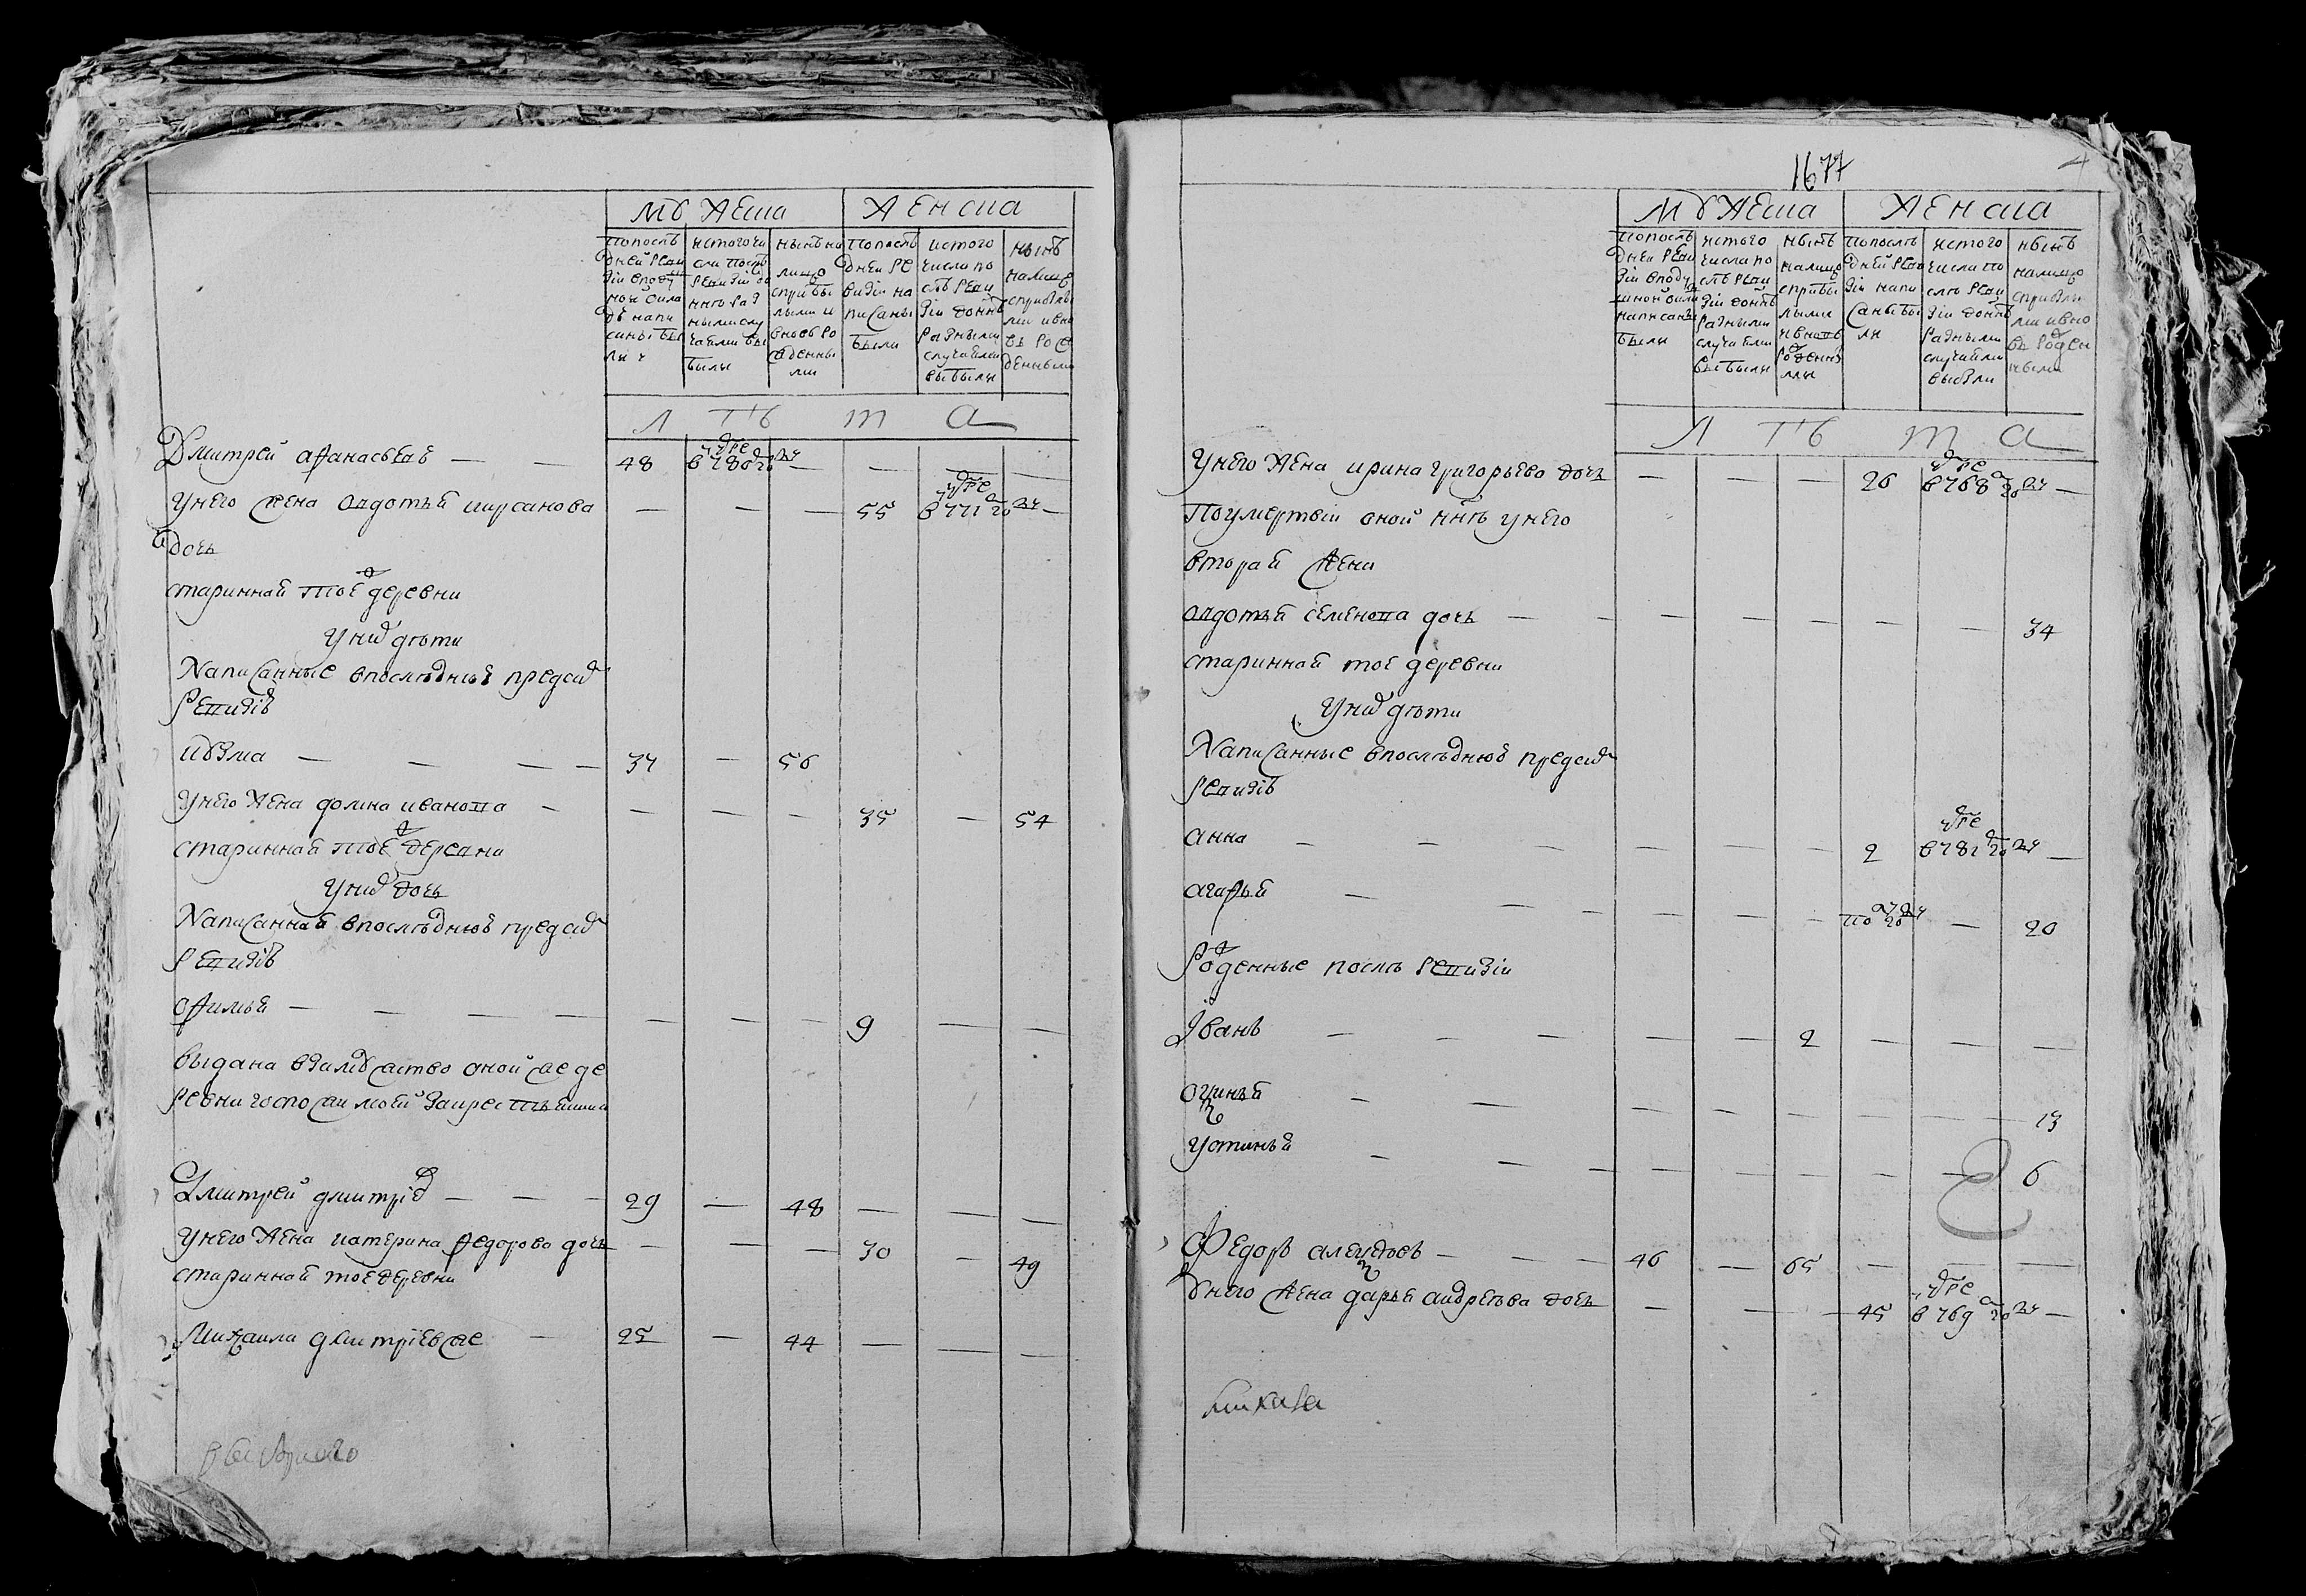 мужеска женска
попослѣ
дней реви
зіи вподу
шной окла
дѣ напи
саны бы
ли
истого чи
сла послѣ
ревизіи до
ннѣ раз
ными слу
чаями вы
были
нынѣ на
лицо
сприбы
лыми и
вновь ро
жденны
ми
попослѣ
дней ре
визіи на
писаны
были
истого
числа по
слѣ реви
зіи доннѣ
разными
случаями
выбыли
нынѣ
налицо
сприбылы
ми ивно
вь рож
денными
лѣта
Дмитрей афанасьевъ — — 48 умре в780 году — — — —
унего жена авдотья кирсанова — — — 55 умре в771 году —
дочь
стариннай тоеж деревни
уних дети
Написанные впоследнюю предсим
ревизію
кузма — — — — 37 — 56
унего жена фокина иванова — — — — 35 — 54
стариннай тоеж деревни
уних дочь
Написанная впоследнюю предсим
ревизію
офимья — — — — — — — 9 — —
выдана взамужство оной же де
ревни
Дмитрей дмитріев — — — 29 — 48 — — —
унего жена катерина федорова дочь — — — 30 — 49
стариннай тоеж деревни
Михаила дмитріевже — 25 — 44 — — —
1677
4
мужеска женска
попослѣ
дней реви
зіи вподу
шной окла
написаны
были
истого
числа по
слѣ реви
зіи доннѣ
разными
случаями
выбыли
нынѣ
налицо
сприбы
лыми
ивновь
рожденны
ми
попослѣ
дней реви
зіи напи
саны бы
ли
истого
числа по
слѣ реви
зіи доннѣ
разными
случаями
выбыли
нынѣ
налицо
сприбылы
ми ивно
вь рожден
ными
лѣта
унего жена ирина григорьева дочь — — — 26 умре в768 году —
поумертвіи оной ннѣ унего
вторая жена
авдотья семенова дочь — — — — — — — — 34
стариннай тоеж деревни
уних дети
Написанные впоследнюю предсим
ревизію
анна — — — — — — 2 умре в782 году —
агафья — — — — — — — 20
рожденные послѣ ревизіи
Іванъ — — — — — 2 — — —
огинья — — — — — — — — 13
устинья — — — — — — — — 6
Федоръ алексѣевъ — — — 46 — 65 — — —
унего жена дарья андреева дочь — — — 45 умре в769 году —